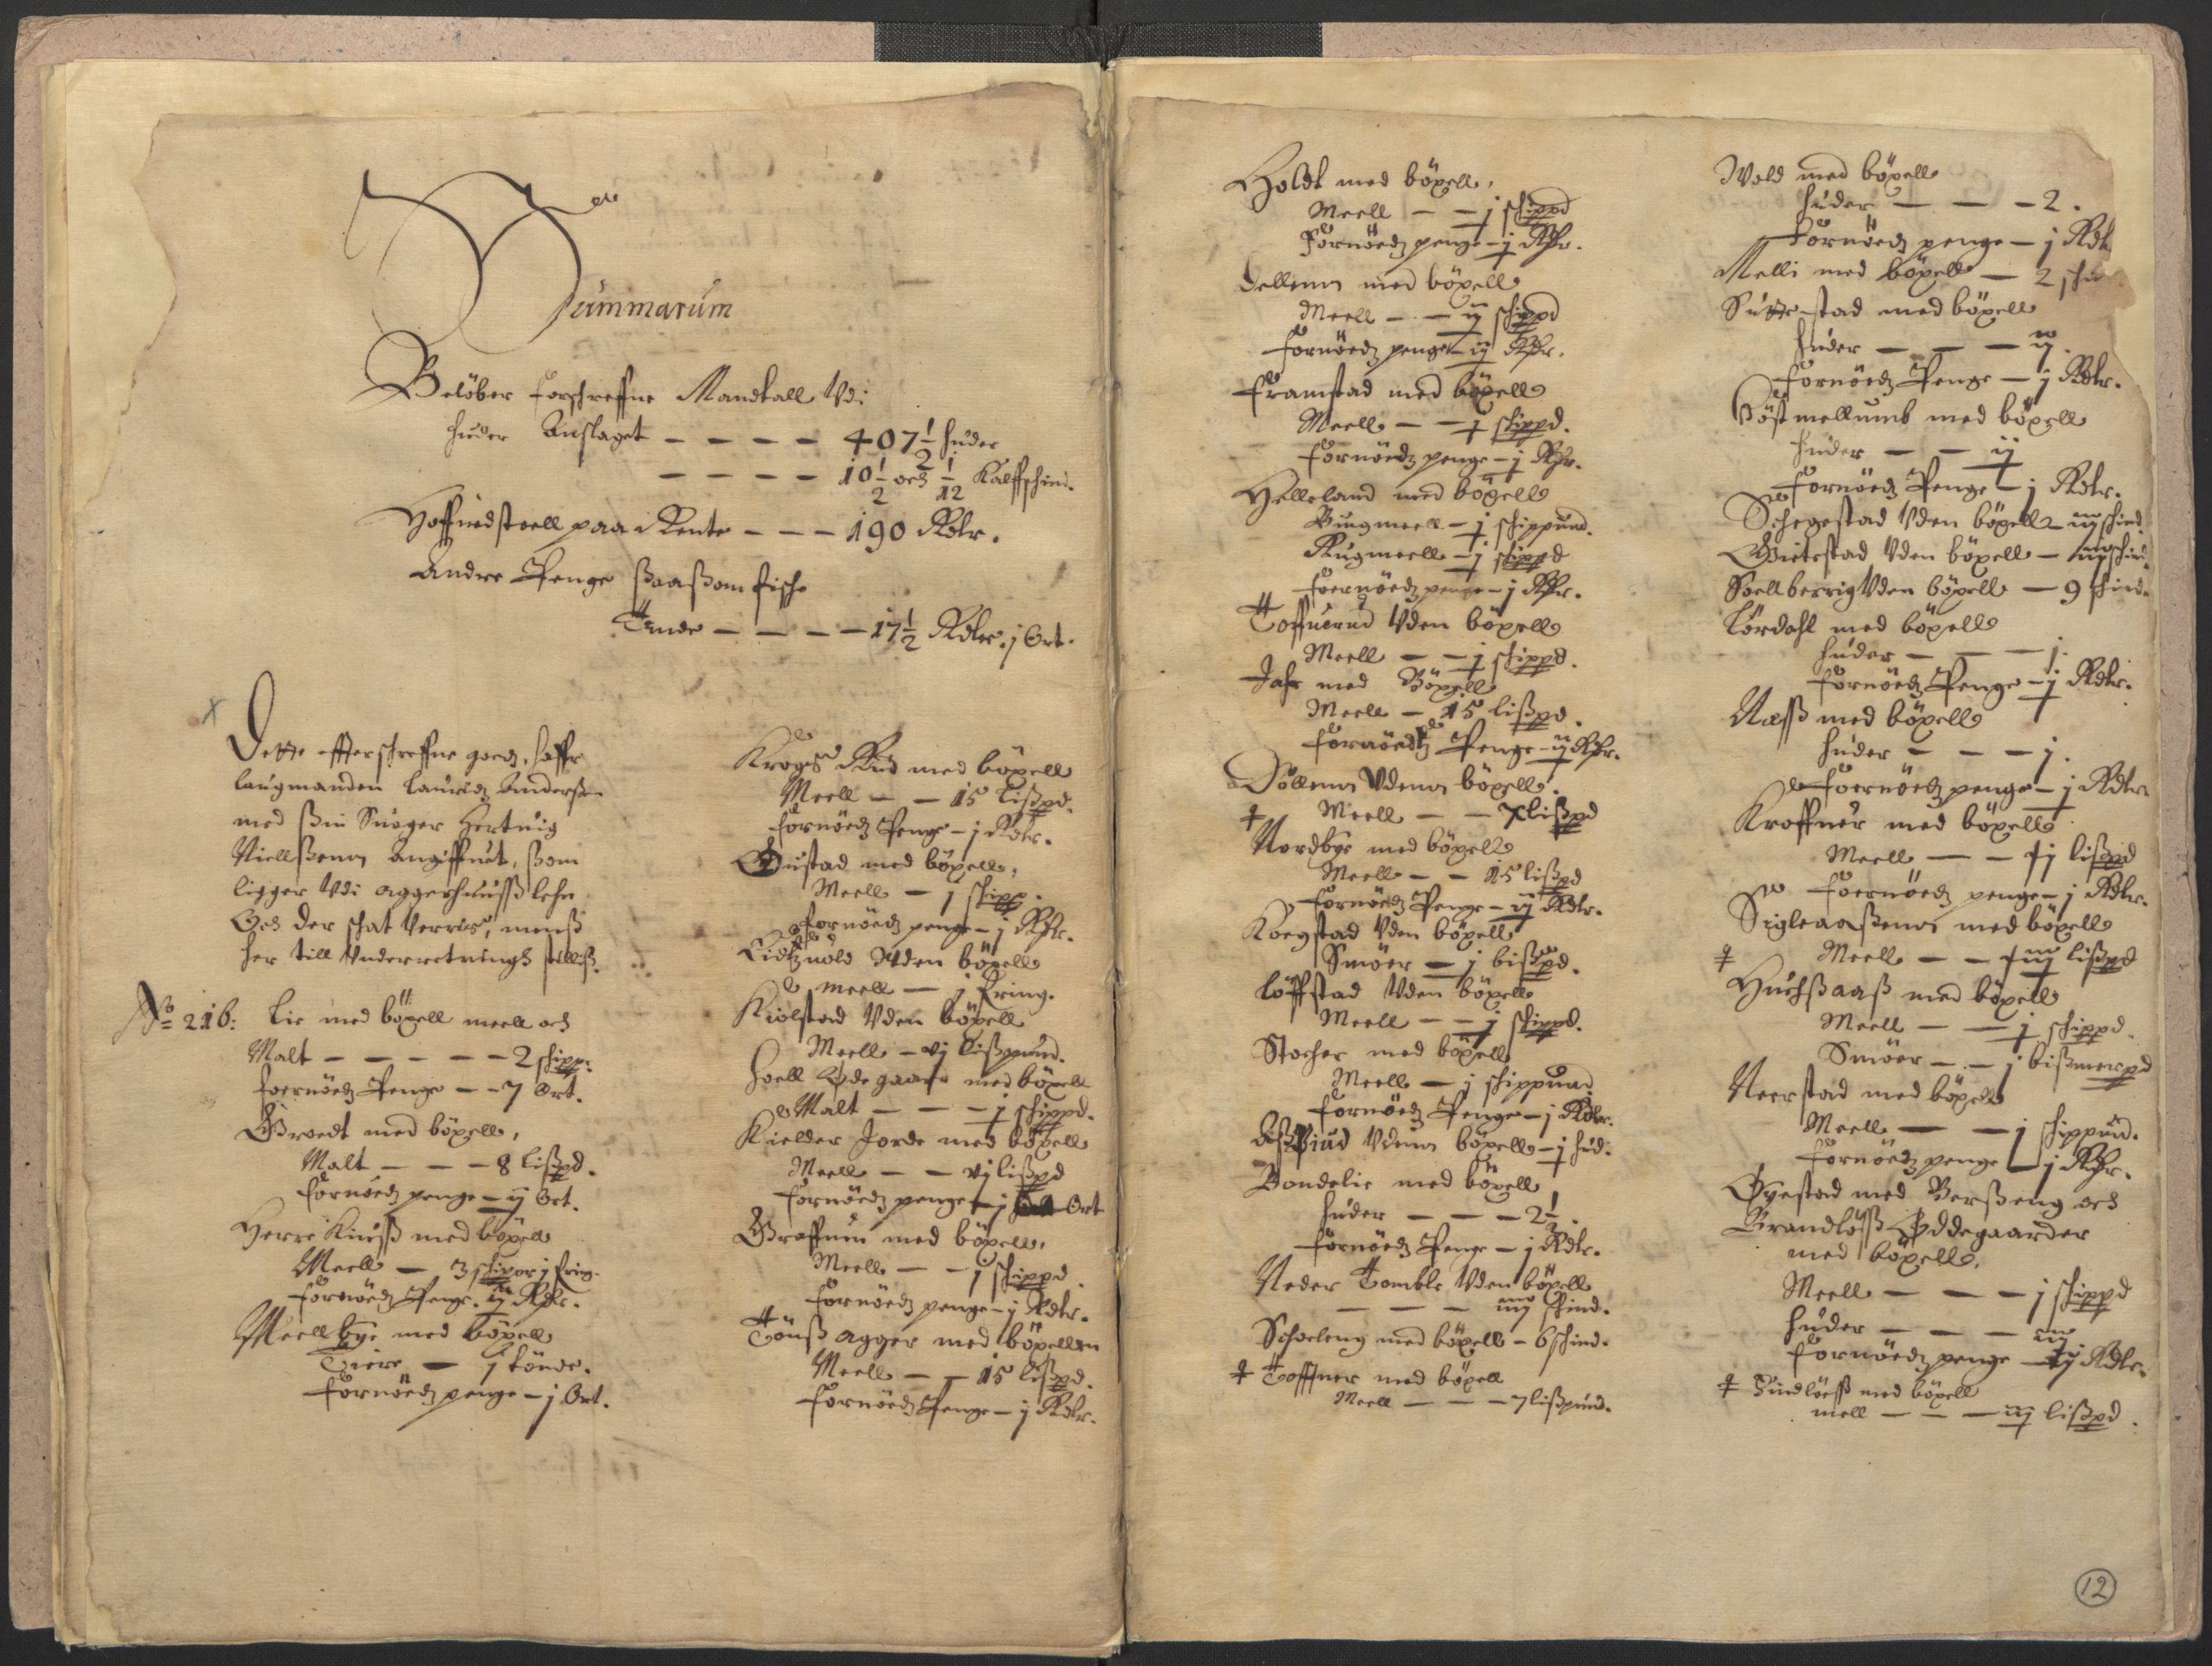 Summarum
Belöber forschreffne Mandtall Vdi
huder Anslaget - - - - 407 1/2 huder
- - - - 10 1/2 och 1/12 Kalffschind.
Hoffuedstoell paa Rente - - - 190 Rdlr.
Andre Penge ßaaßom fische
Tiende - - - - 17 1/2 Rdlr. j Ort.
Dette effterschreffne goedz, haffr
laugmanden Lauridz Anderßen
med ßin Suoger Hertuig
Niellßenn Angiffuet, ßom
ligger Vdi Aggershuuß lehn
Och der schat Verris, menß
her till Vnderretningh stilliß.
No 216: Lie med böxell meell och
Malt - - - - - 2 schipp:
foernöedz Penge - - 7 Ort.
Groedt med böxell,
Malt - - - 8 lißpd.
fornöedz penge - ij Ort.
Herre Kiuß med böxell
Meell - 3 schipor j fring.
fornöedz Penge. ij Rdlr.
Meellbye med böxell
Tiere - j tönde.
fornöedz penge - j Ort.
Krogs Rud med böxell
Meell - - 15 Lißpd.
fornöedz Penge - j Rdlr.
Gustad med böxell,
Meell - j schipp.
fornöedz penge - j Rdlr.
Lidtzuold Vden böxell
meell - j fring.
Kiölstad Vden böxell
Meell - vj Lißpund.
hoell Ödegaard med böxell
Malt - - - j schippd.
Kielder Jorde med böxell
Meell - - vj lißpd
fornöedz penge - j Ort
Graffuin med böxell,
Meell - - j schippd.
fornöedz penge - j Rdlr.
Tönß agger med böxellen
Meell - - 15 lißpd.
fornöedz Penge - j Rdlr.
Holdt med böxell,
Meell - - j schippd
Fornöedz penge - j Rdlr.
Dellenn med böxell
Meell - - ij schippd
fornöedz penge - ij Rdlr.
Framstad med böxell
Meell - - j schippd.
fornöedz penge - j Rdlr.
Helleland med böxell
Biugmeell - j schippund.
Rugmeell - j schippd
foernöedz penge - j Rdlr.
Toffuerud Vden böxell
Meell - - j schippd.
Jahr med Böxell
Meell - 15 lißpd.
fornöedtz Penge - ij Rdlr.
Döllenn Vdenn böxell.
Meell - - X lißpd
Nordbye med böxell
Meell - - 15 lißpd
fornöedz Penge - ij Rdlr.
Koegstad Vden böxell
Smöer - j bißpd.
Löffstad Vden böxell
Meell - - j schippd.
Stocher med böxell
Meell - j schippund
fornöedz Penge - j Rdlr.
Vdenn böxell - j hud.
Bondelie med böxell
huder - - - 2 1/2.
fornöedz Penge - j Rdlr.
Neder Tomble Vden böxell
- - - iiij schind.
Schoeleng med böxell - 6 schind.
Tofftner med böxell
Meell - - - 7 lißpund.
Wold med böxell
huder - - - 2.
fornöedz penge - j Rdl
Melli med böxell - 2
Suttestad med böxell
huder - - - ij.
fornöedz Penge - j Rdlr.
Böstmellumb med böxell
huder - - ij
fornöedz Penge - j Rdlr.
Schegestad Vden böxell - iij schind.
Gietestad Vden böxell - iiij schind.
Soellberrig Vden böxell - 9 schind.
Lördahl med böxell
huder - - - j.
fornöedz Penge - j Rdlr.
Næß med böxell
huder - - - j.
foernöedz penge - j Rdlr.
Kroffner med böxell
Meell - - vj lißpd
foernöedz penge - j Rdlr.
Sigleaaßenn med böxell
Meell - - viij lißpd
Huchßaaß med böxell
Meell - - j schippd.
Smöer - - j bißmerpd
Neerstad med böxell
Meell - - j schippund.
fornöedz penge - j Rdlr.
Öyestad med Berßeng och
Brandlöß Öddegaarder
med böxell.
Meell - - - j schippd
huder - - - iij
fornöedz penge - ij Rdlr.
Sindlöeß med böxell
mell - - - iij lißpd.
12